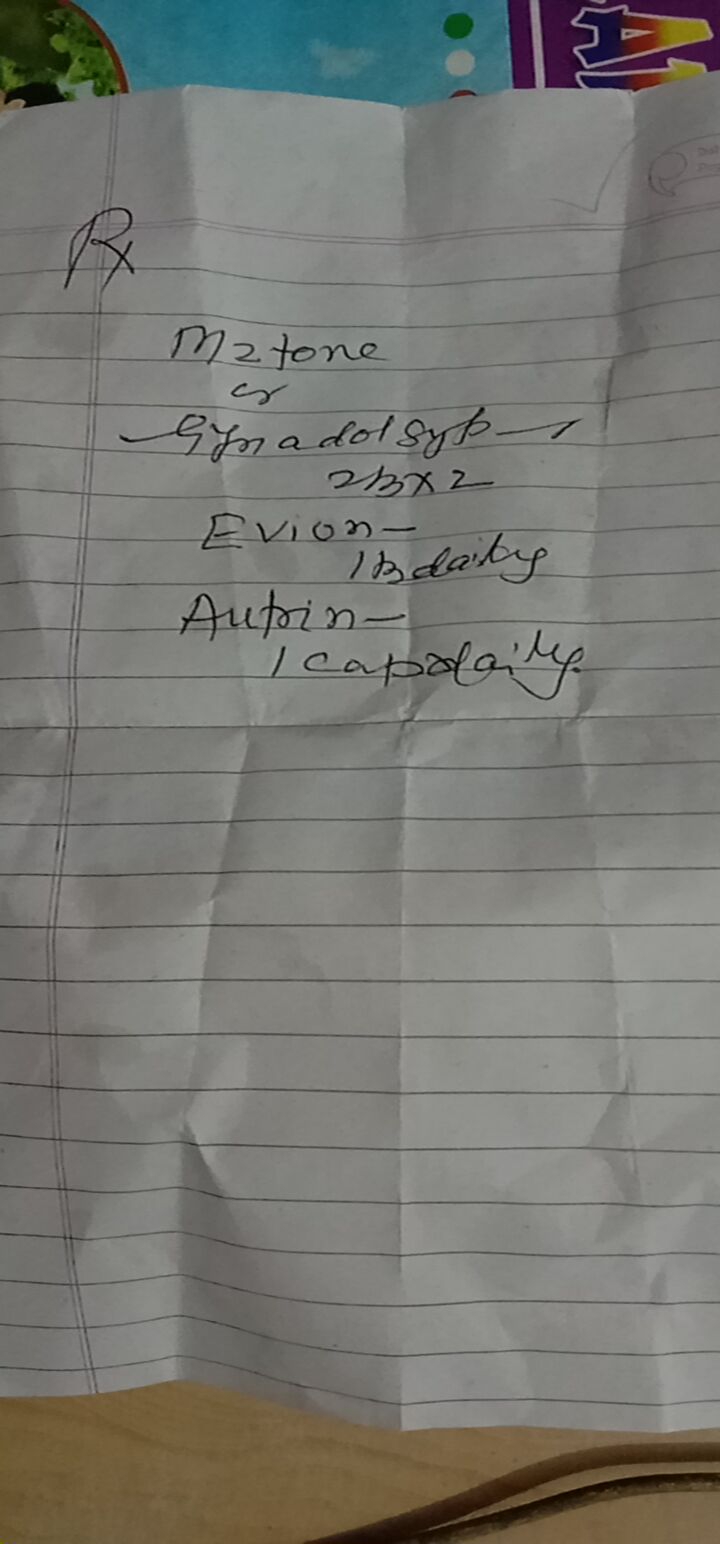 Rx
M2tone
or
Gynadol Syp
2 x 2
Evion -
1 daily
Autrin -
1 cap daily.